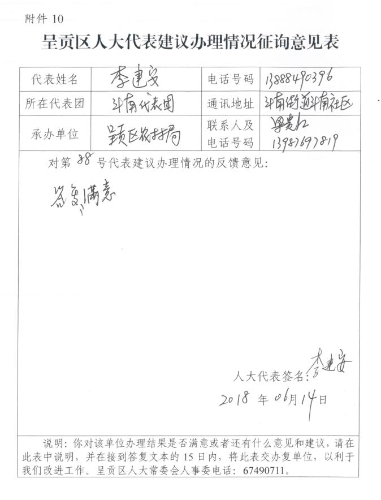 附件 10
呈贡区人大代表建议办理情况征询意见表
代表姓名 李建安 电话号码 13888490396
所在代表团 斗南代表团 通讯地址 斗南街道斗南社区
承办单位 呈贡区农林局 联系人及电话号码 13987697819
对第 88 号代表建议办理情况的反馈意见：
答复满意
人大代表签名：李建安
2018 年 06月 14日
说明：你对该单位办理结果是否满意或者还有什么意见和建议，请在
此表中说明，并在接到答复文的 15 日内，将此表交办复单位，以利于
我们改进工作。呈贡区人大常委会人事委电话：67490711.